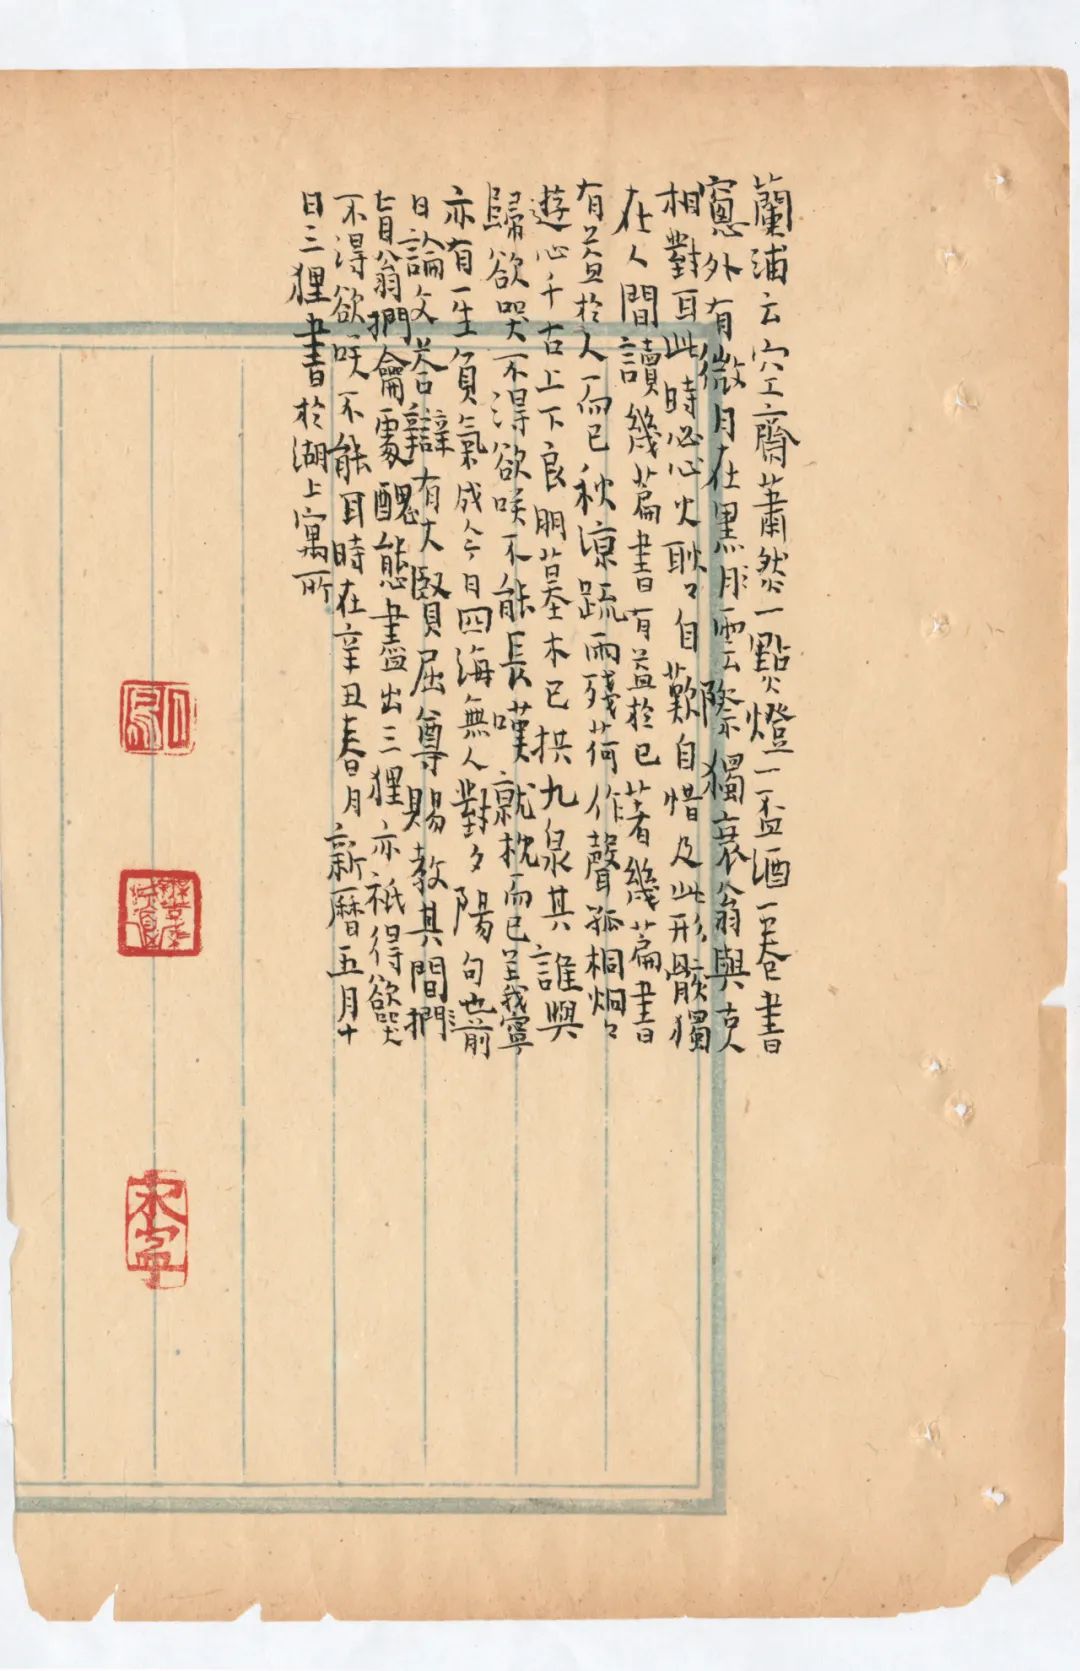 蘭浦云空齋蕭然一點燈一盃酒一卷書
窻外有微月在黑雲際獨衰翁與古人
相對耳此時必心火耿々自歎自惜及此形骸獨
在人間讀幾篇書有益於已著幾篇書
有益於人而已秋涼疏雨殘荷作聲孤桐炯々
遊心千古上下良朋墓木已拱九泉其誰與
歸欲哭不得欲咲不能長嘆就枕而已並我寧
亦有一生負氣成今日四海無人對夕陽句也前
日論文答辯有大賢屈尊賜教其間捫
盲翁捫龠處醜態盡出三狸亦祇得欲哭
不得欲咲不能耳時在辛丑春月新曆五月十
日三狸書於湖上寓所
宋寧